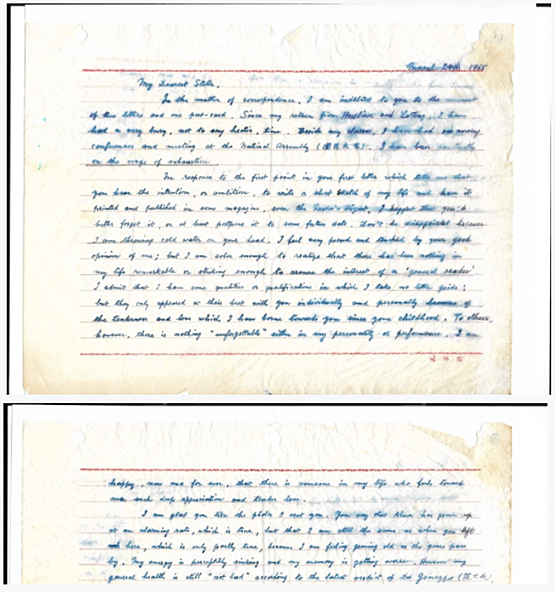 March 24th, 1965
My Dearest Stella,
In the matter of correspondence, I am indebted to you to the amount
of three letters and one post-card. Since my return from and , I have
had a very busy, not to say hectic, time. Beside my classes, I have had so many
conferences and meeting at the National Assembly ( ). I have been
on the verge of exhaustion.
In response to the first point in your first letter which tells me that
you have the intention, or ambition, to write a short sketch of my life and have it
printed and published in some magazine, even the Reader's Digest, I suggest that you'd
better forget it, or at least postpone it to some future date. Don't be disappointed because
I am throwing cold water on your head. I feel very proud and touched by your good
opinion of me; but I am sober enough to realize that there has been nothing in
my life remarkable or striking enough to arouse the interest of a 'general reader'.
I admit that I have some qualities or qualifications in which I take no little pride;
but they only appeared at their best with you individually and personally because of
the tenderness and love which I have borne towards you since your childhood. To others,
however, there is nothing "unforgettable" either in my personality or performance. I am
happy, now and for ever, that there is someone in my life who feels toward
me such deep appreciation and tender love.
I am glad you like the photo I sent you. You say that has grown up
at an alarming rate, which is true, but that I am still the same as when you left
here, which is only partly true, because I am feeling growing old as the years pass
by. My energy is perceptibly sinking and my memory is getting worse. However my
general health is still "not bad" according to the latest of Dr